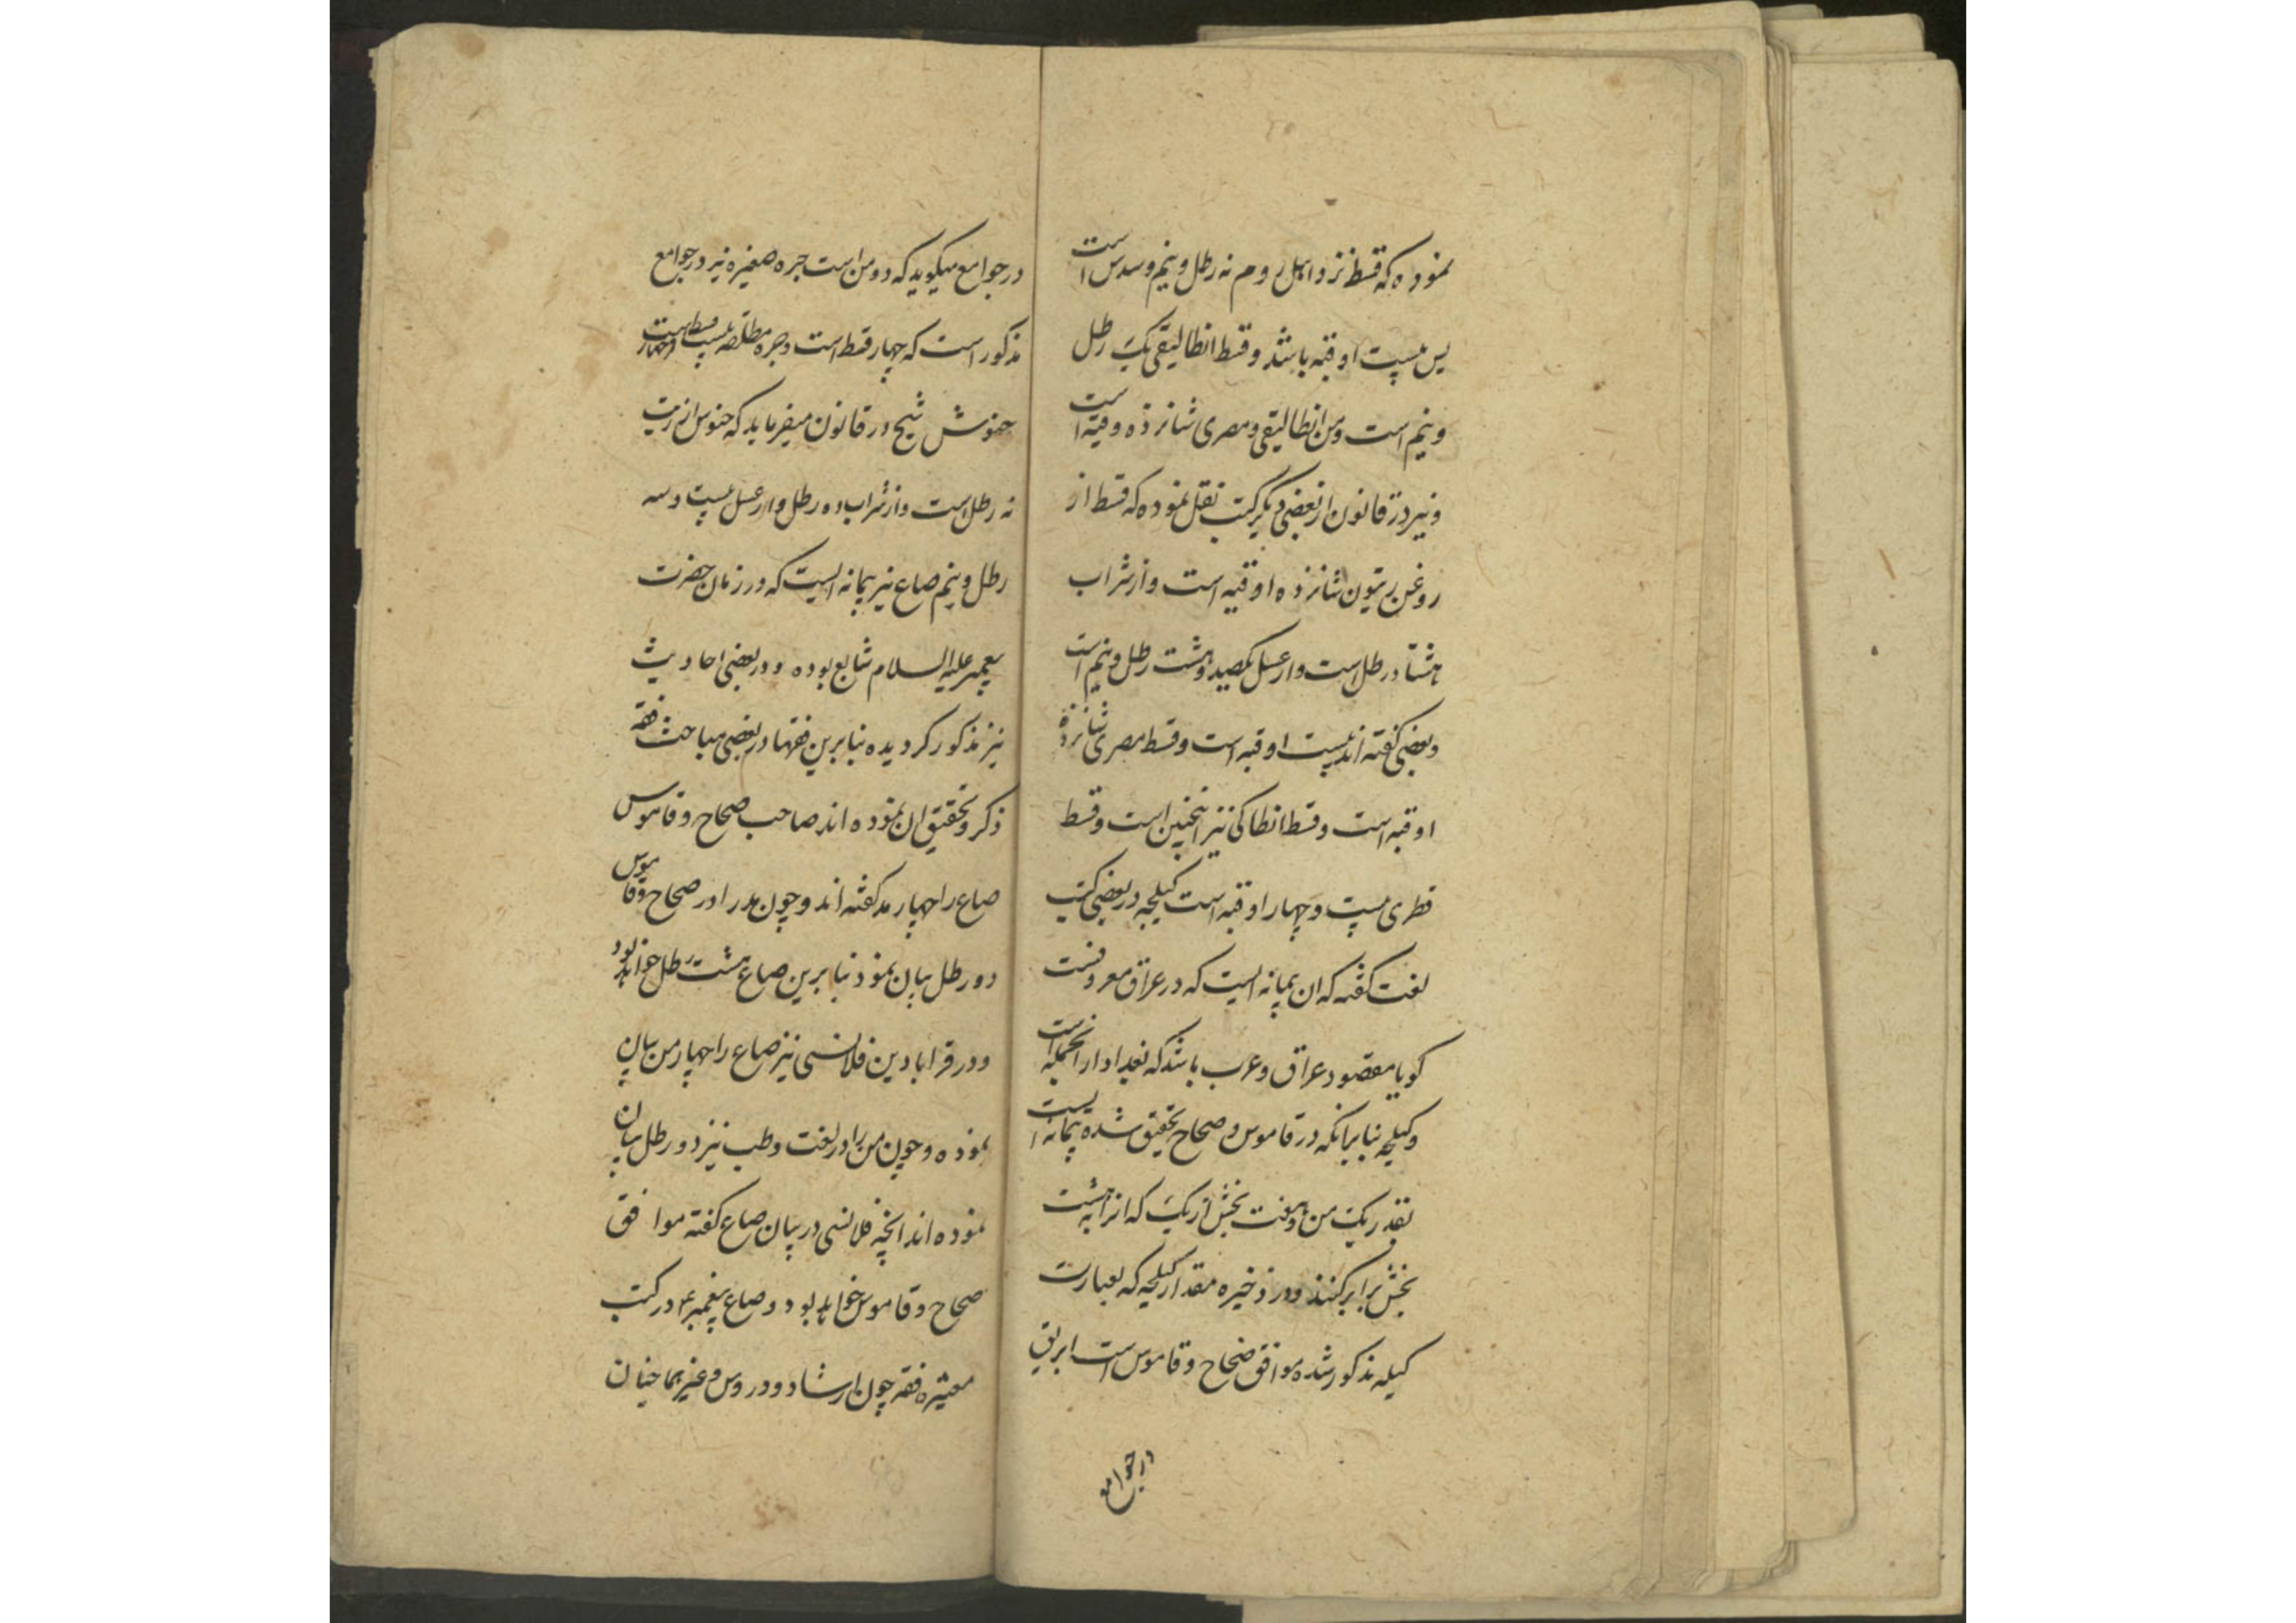 نموده که قسط نزد اهل روم نه رطل و نیم و سدس است
پس بیست اوقیه باشد و قسط انطالیقی یک رطل
و نیم است و من انطالیقی و مصری شانزده وقیه است
و نیز در قانون از بعضی دیگر کتب نقل نموده که قسط از
روغن زیتون شانزده اوقیه است و از شراب
هشتاد رطل است و از عسل یکصد و هشت رطل و نیم است
و بعضی گفته اند بیست اوقیه است و قسط مصری شانزده
اوقیه است و قسط انطاکی نیز اینچنین است و قسط
قطری بیست و چهار اوقیه است کیلجه در بعضی کتب
لغت گفته که ان پیمانه ایست که در عراق معروفست
کویا مقصود عراق و عرب باشد که بغداد از انجمله است
و کیلجه بنا برانکه در قاموس و صحاح تحقیق شده پیمانه ایست
بقدر یک من و هفت بخش از یک که انرا بهشت
بخش برابر کنند و در ذخیره مقدار کیلجه که بعبارت
کیله مذکور شده موافق صحاح و قاموس است ابریق
در جوامع
در جوامع میکوید که دو من است جره صغیره نیز در جوامع
مذکور است که چهار قسط است و جره مطلقه بیست و چهار قسط است
جنوش شیخ در قانون میفرماید که جنوس از زیت
نه رطل است و از شراب ده رطل و از عسل بیست و سه
رطل و نیم صاع نیز پیمانه ایست که در زمان حضرت
پیغمبر علیه السلام شایع بوده و در بعضی احادیث
نیز مذکور کردیده بنابرین فقها در بعضی مباحث فقه
ذکر و تحقیق ان نموده اند صاحب صحاح و قاموس
صاع را چهار مد گفته اند و چون مد را در صحاح و قاموس
دو رطل بیان نموده بنابرین صاع هشت رطل خواهد بود
و در قرابادین قلانسی نیز صاع را چهار من بیان
نموده و چون من را در لغت و طب نیز دو رطل بیان
نموده اند انچه قلانسی در بیان صاع گفته موافق
صحاح و قاموس خواهد بود و صاع پیغمبر ع در کتب
معتبره فقه چون ارشاد و دروس و غیرهما چنان